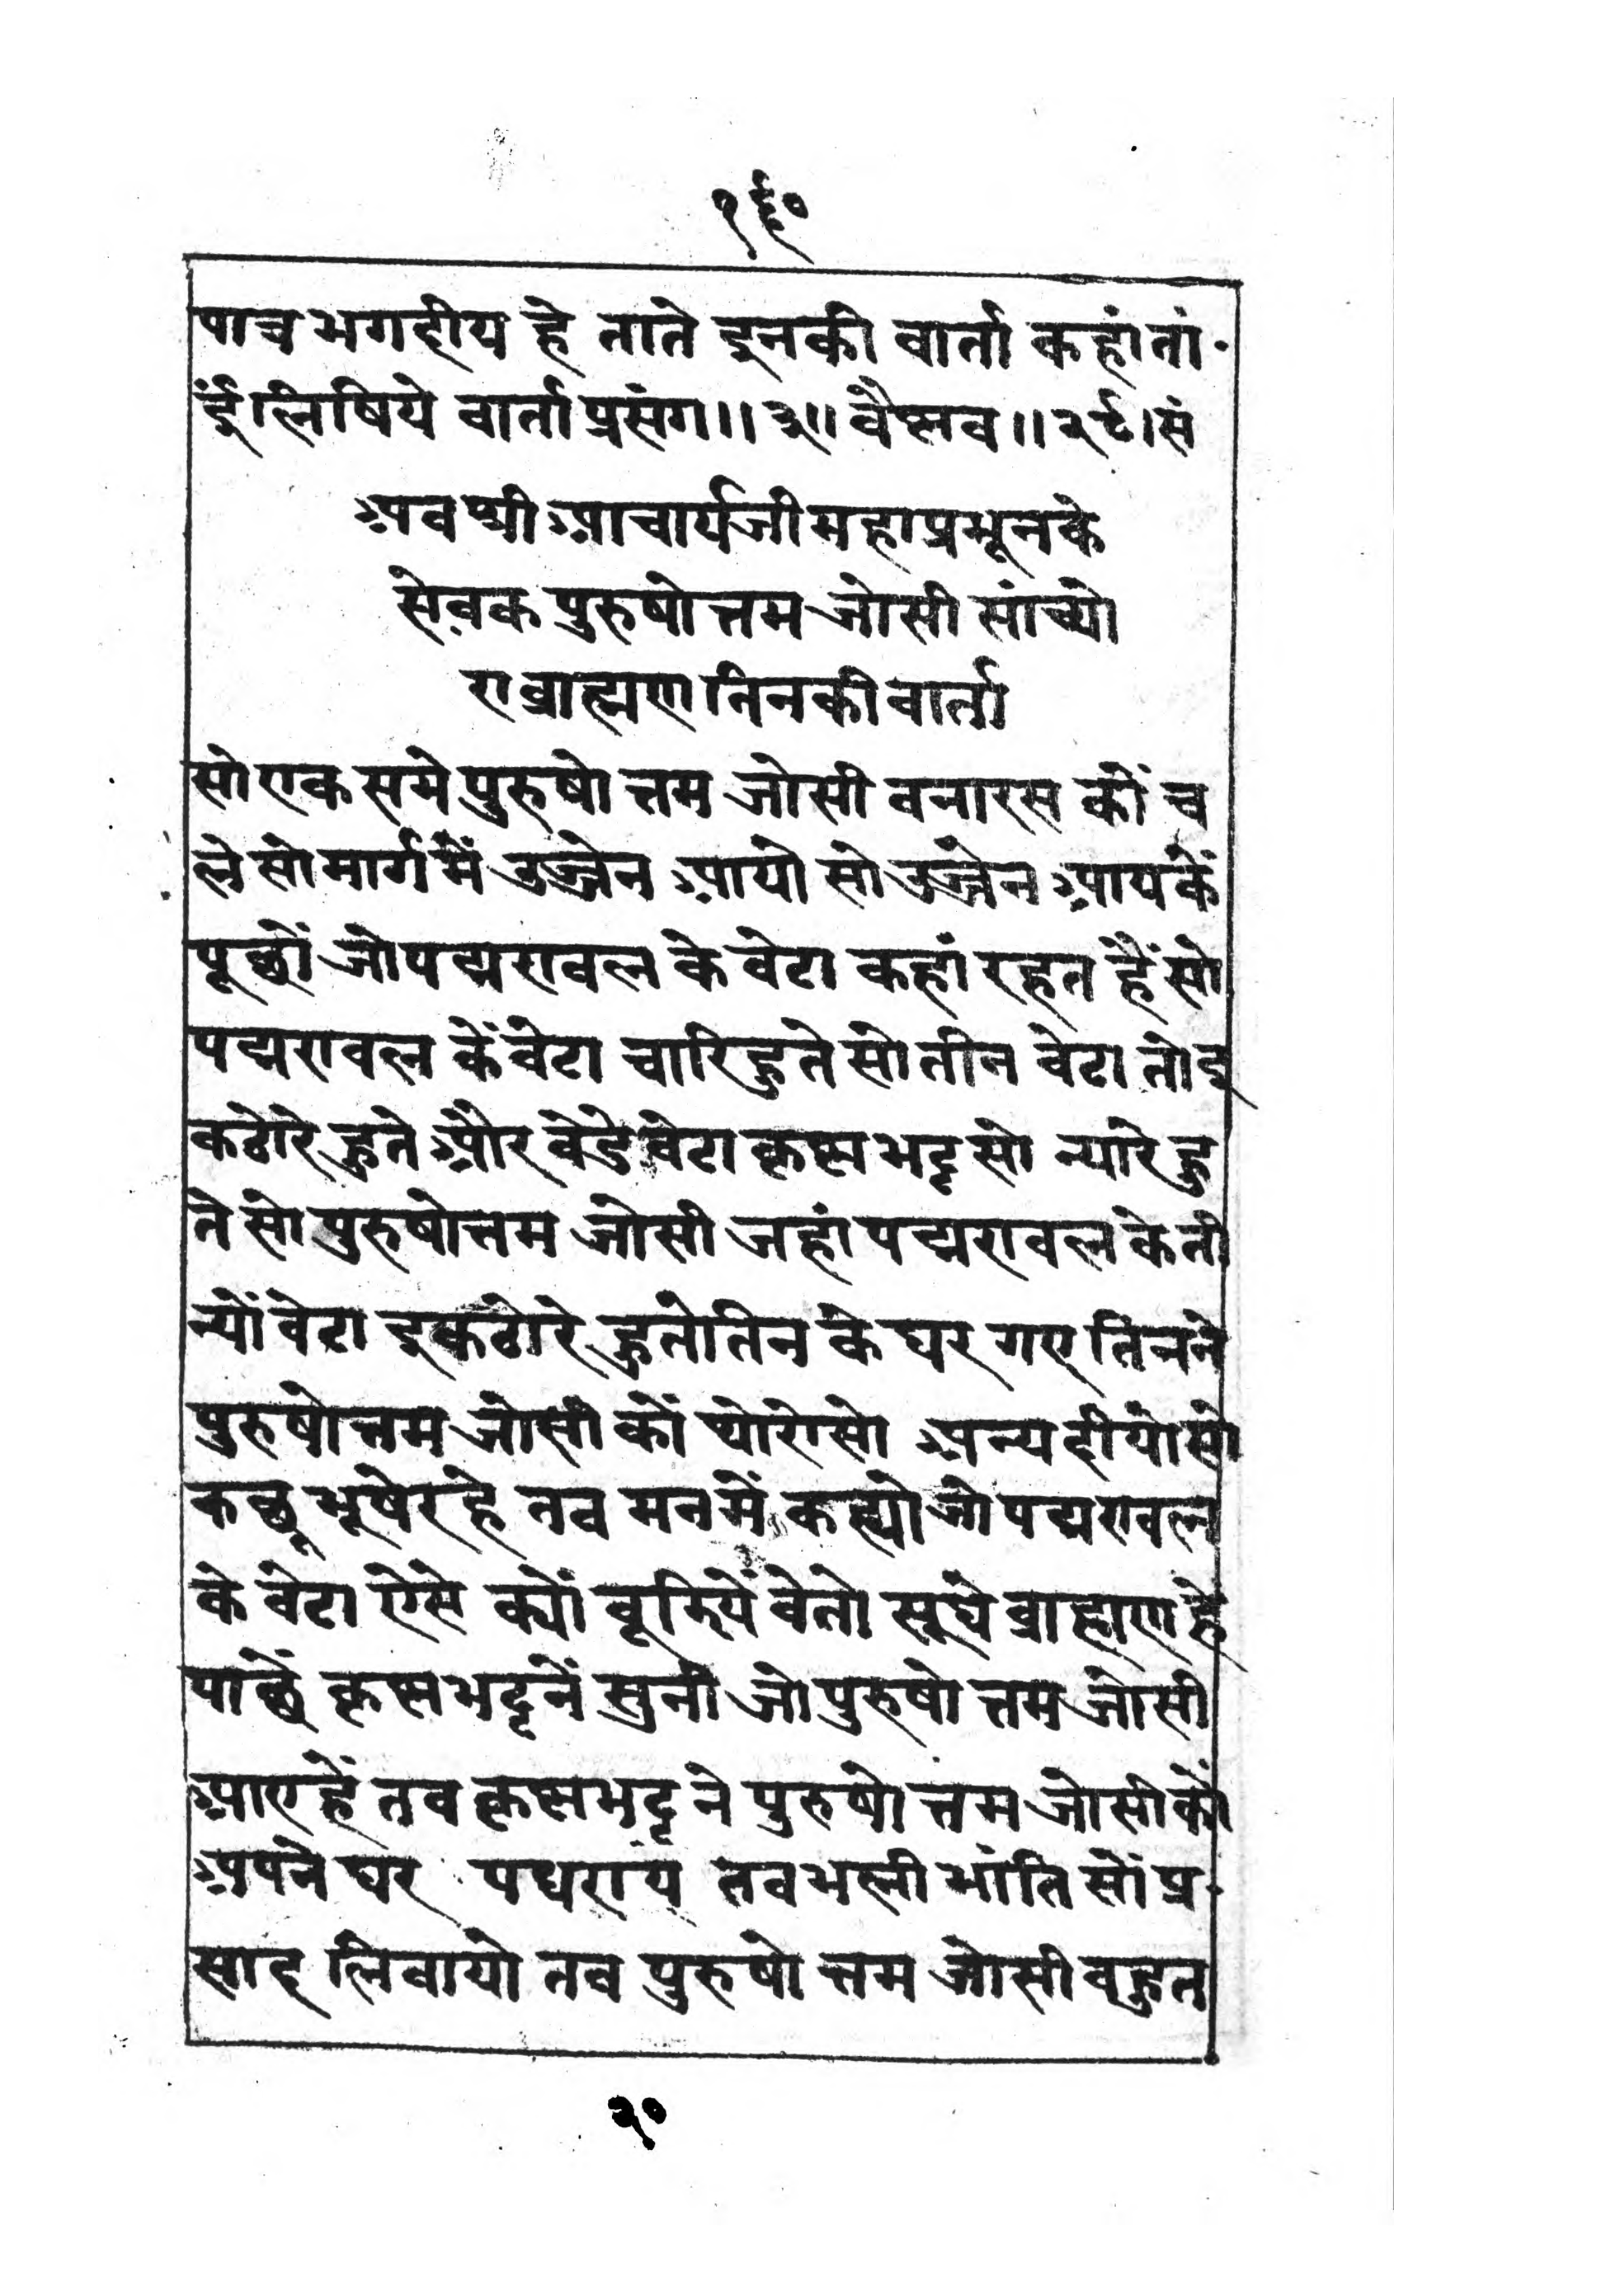 १६०
पाच भगदीय हे ताते इनकी वार्ता कहां तां
ईलिषिये वार्ता प्रसंग॥३॥ वैष्णव॥२९।सं
अव श्री आचार्यजी महाप्रभूनके
सेवक पुरुषोत्तम जोसी सांच्यो
रा ब्राह्मण तिनकी वार्ता
सो एक समे पुरुषोत्तम जोसी वनारस कों च
ले सो मार्ग में उज्जेन आयो सो उज्जेन आयकें
पूछों जो पद्मरावल के वेटा कहां रहत हैं सो
पद्मरावल कें वेटा चारि हुते सो तीन वेटा तो इ
कठोरे हुते और वेडे वेटा कृष्णभट्ट सो न्यारे हु
ते सो पुरुषोत्तम जोसी जहां पद्मरावल के ती
न्यों वेटा इकठोरे हुते तिन के घर गए तिनने
पुरुषोत्तम जोसी कों थोरो सो अन्य दीयो सो
कछू भूषे रहे तव मन में कह्यो जो पद्मरावल
के वेटा ऐसे क्यों वूझियें वे तो सूधे ब्राह्मण हे
पाछें कृष्णभट्टनें सुनी जो पुरुषोत्तम जोसी
आए हें तव कृष्णभट्ट ने पुरुषोत्तम जोसी कों
अपने घर पधराय तव भली भांति सों प्र
साद लिवायो तव पुरुषोत्तम जोसी वहुत
२०